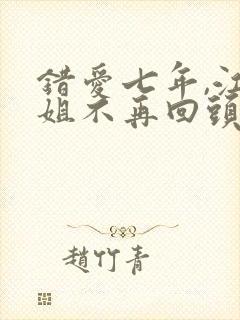 錯愛七年,江
姐不再回頭
趙竹青